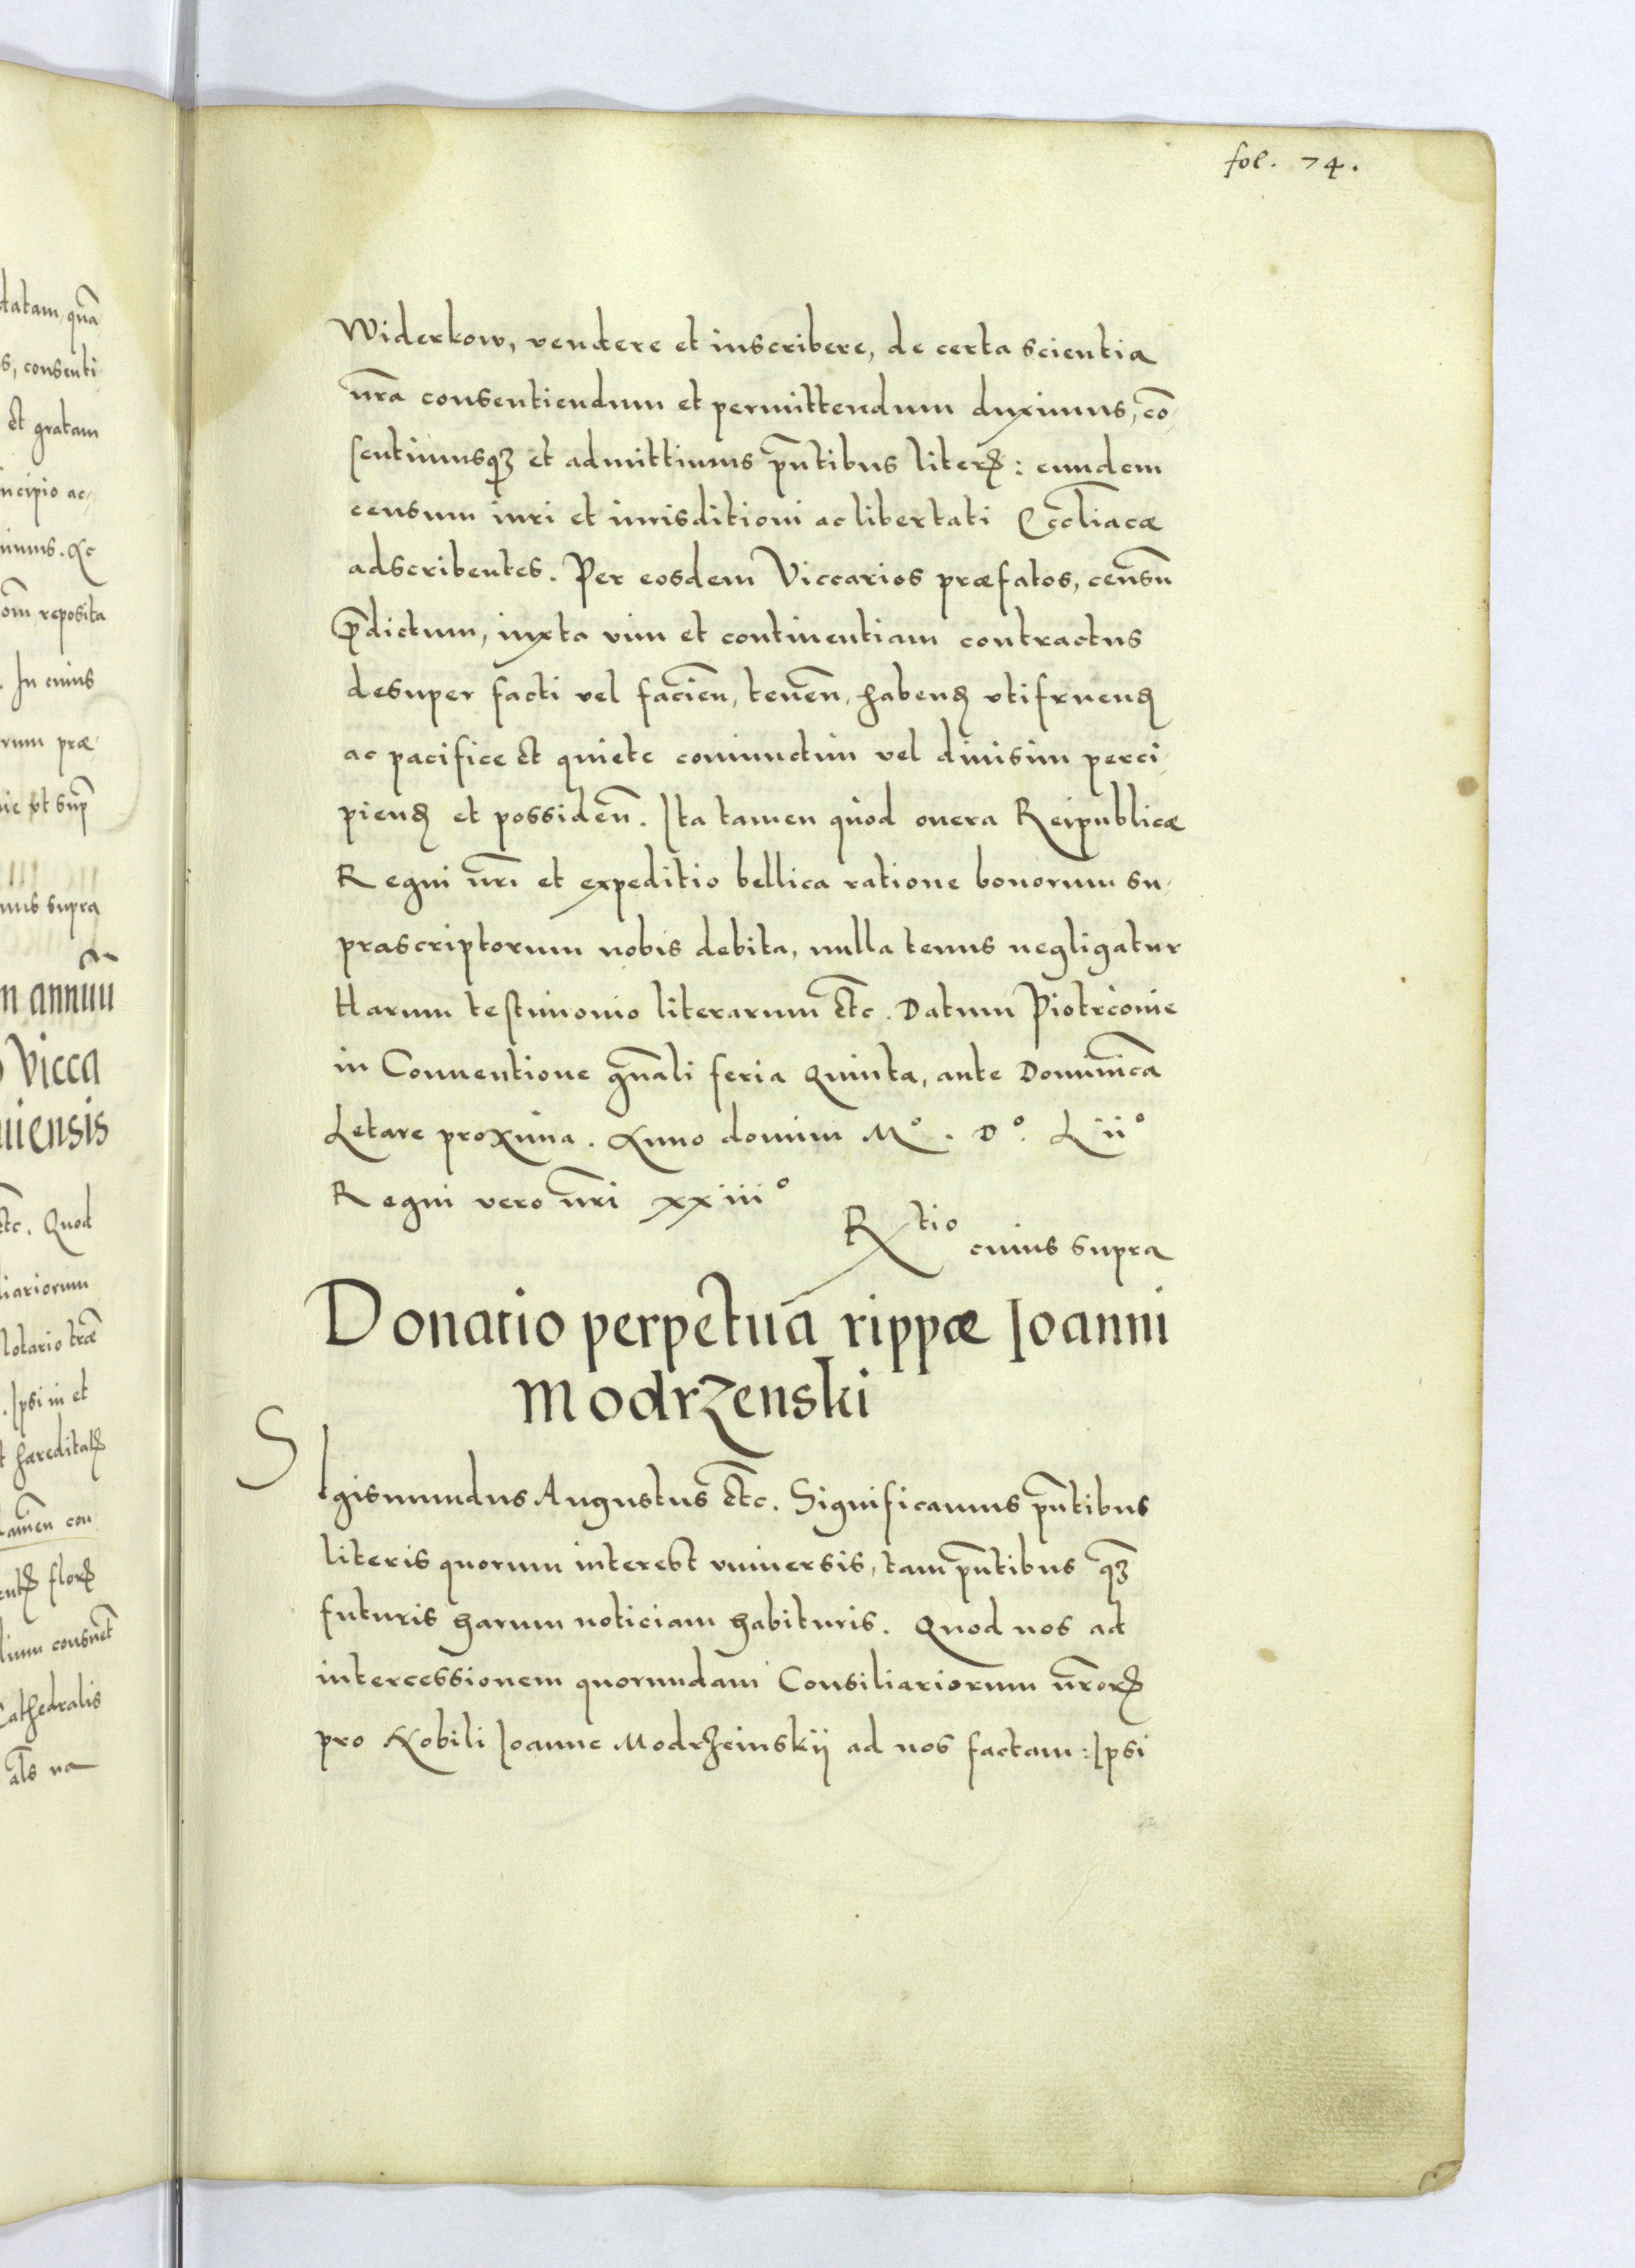 fol. 74.
Widerkow, vendere et inscribere, de certa scientia
nr̃a consentiendum et permittendum duximus, cõ,
sentimusqꝫ et admittimus pñtibus literꝭ: eundem
censum iuri et iurisditioni ac libertati Eccl̃iacæ
adscribentes. Per eosdem Viccarios præfatos, censũ
p̃dictum, iuxta vim et continentiam contractus
desuper facti vel facieñ, teneñ, habenꝭ vtifruenꝭ
ac pacifice et quiete coniunctim vel diuisim perci,
pienꝭ et possideñ. Ita tamen quod onera Reipublicæ
Regni nr̃i et expeditio bellica ratione bonorum su,
prascriptorum nobis debita, nulla tenus negligatur
Harum testimonio literarum etc. Datum Piotrcouie
in Conuentione gñali feria Quinta, ante Dominicã
Letare proxima. Anno domini Mº. Dº. Liiº
Regni vero nr̃i xxiiiº
Rtio cuius supra
Donatio perpetua rippæ Ioanni
Modrzenski
SIgismundus Augustus etc. Significamus pñtibus
literis quorum interest vniuersis, tam pñtibus qꝫ
futuris harum noticiam habituris. Quod nos ad
intercessionem quorundam Consiliariorum nr̃orꝭ
pro Nobili Ioanne Modrzeinskij ad nos factam: Ipsi
datam, quã
s, consenti
et gratam
incipio ac,
imus. Ac
reposita
. In cuius
rum præ,
ut sup̃
mus supra
n annuũ
Vicca
uiensis
etc. Quod
liariorum
Notario tr̃æ
. Ipsi in et
hæreditatꝭ
tamen con
florꝭ
lium consuet̃
Cathedralis
al̃s na